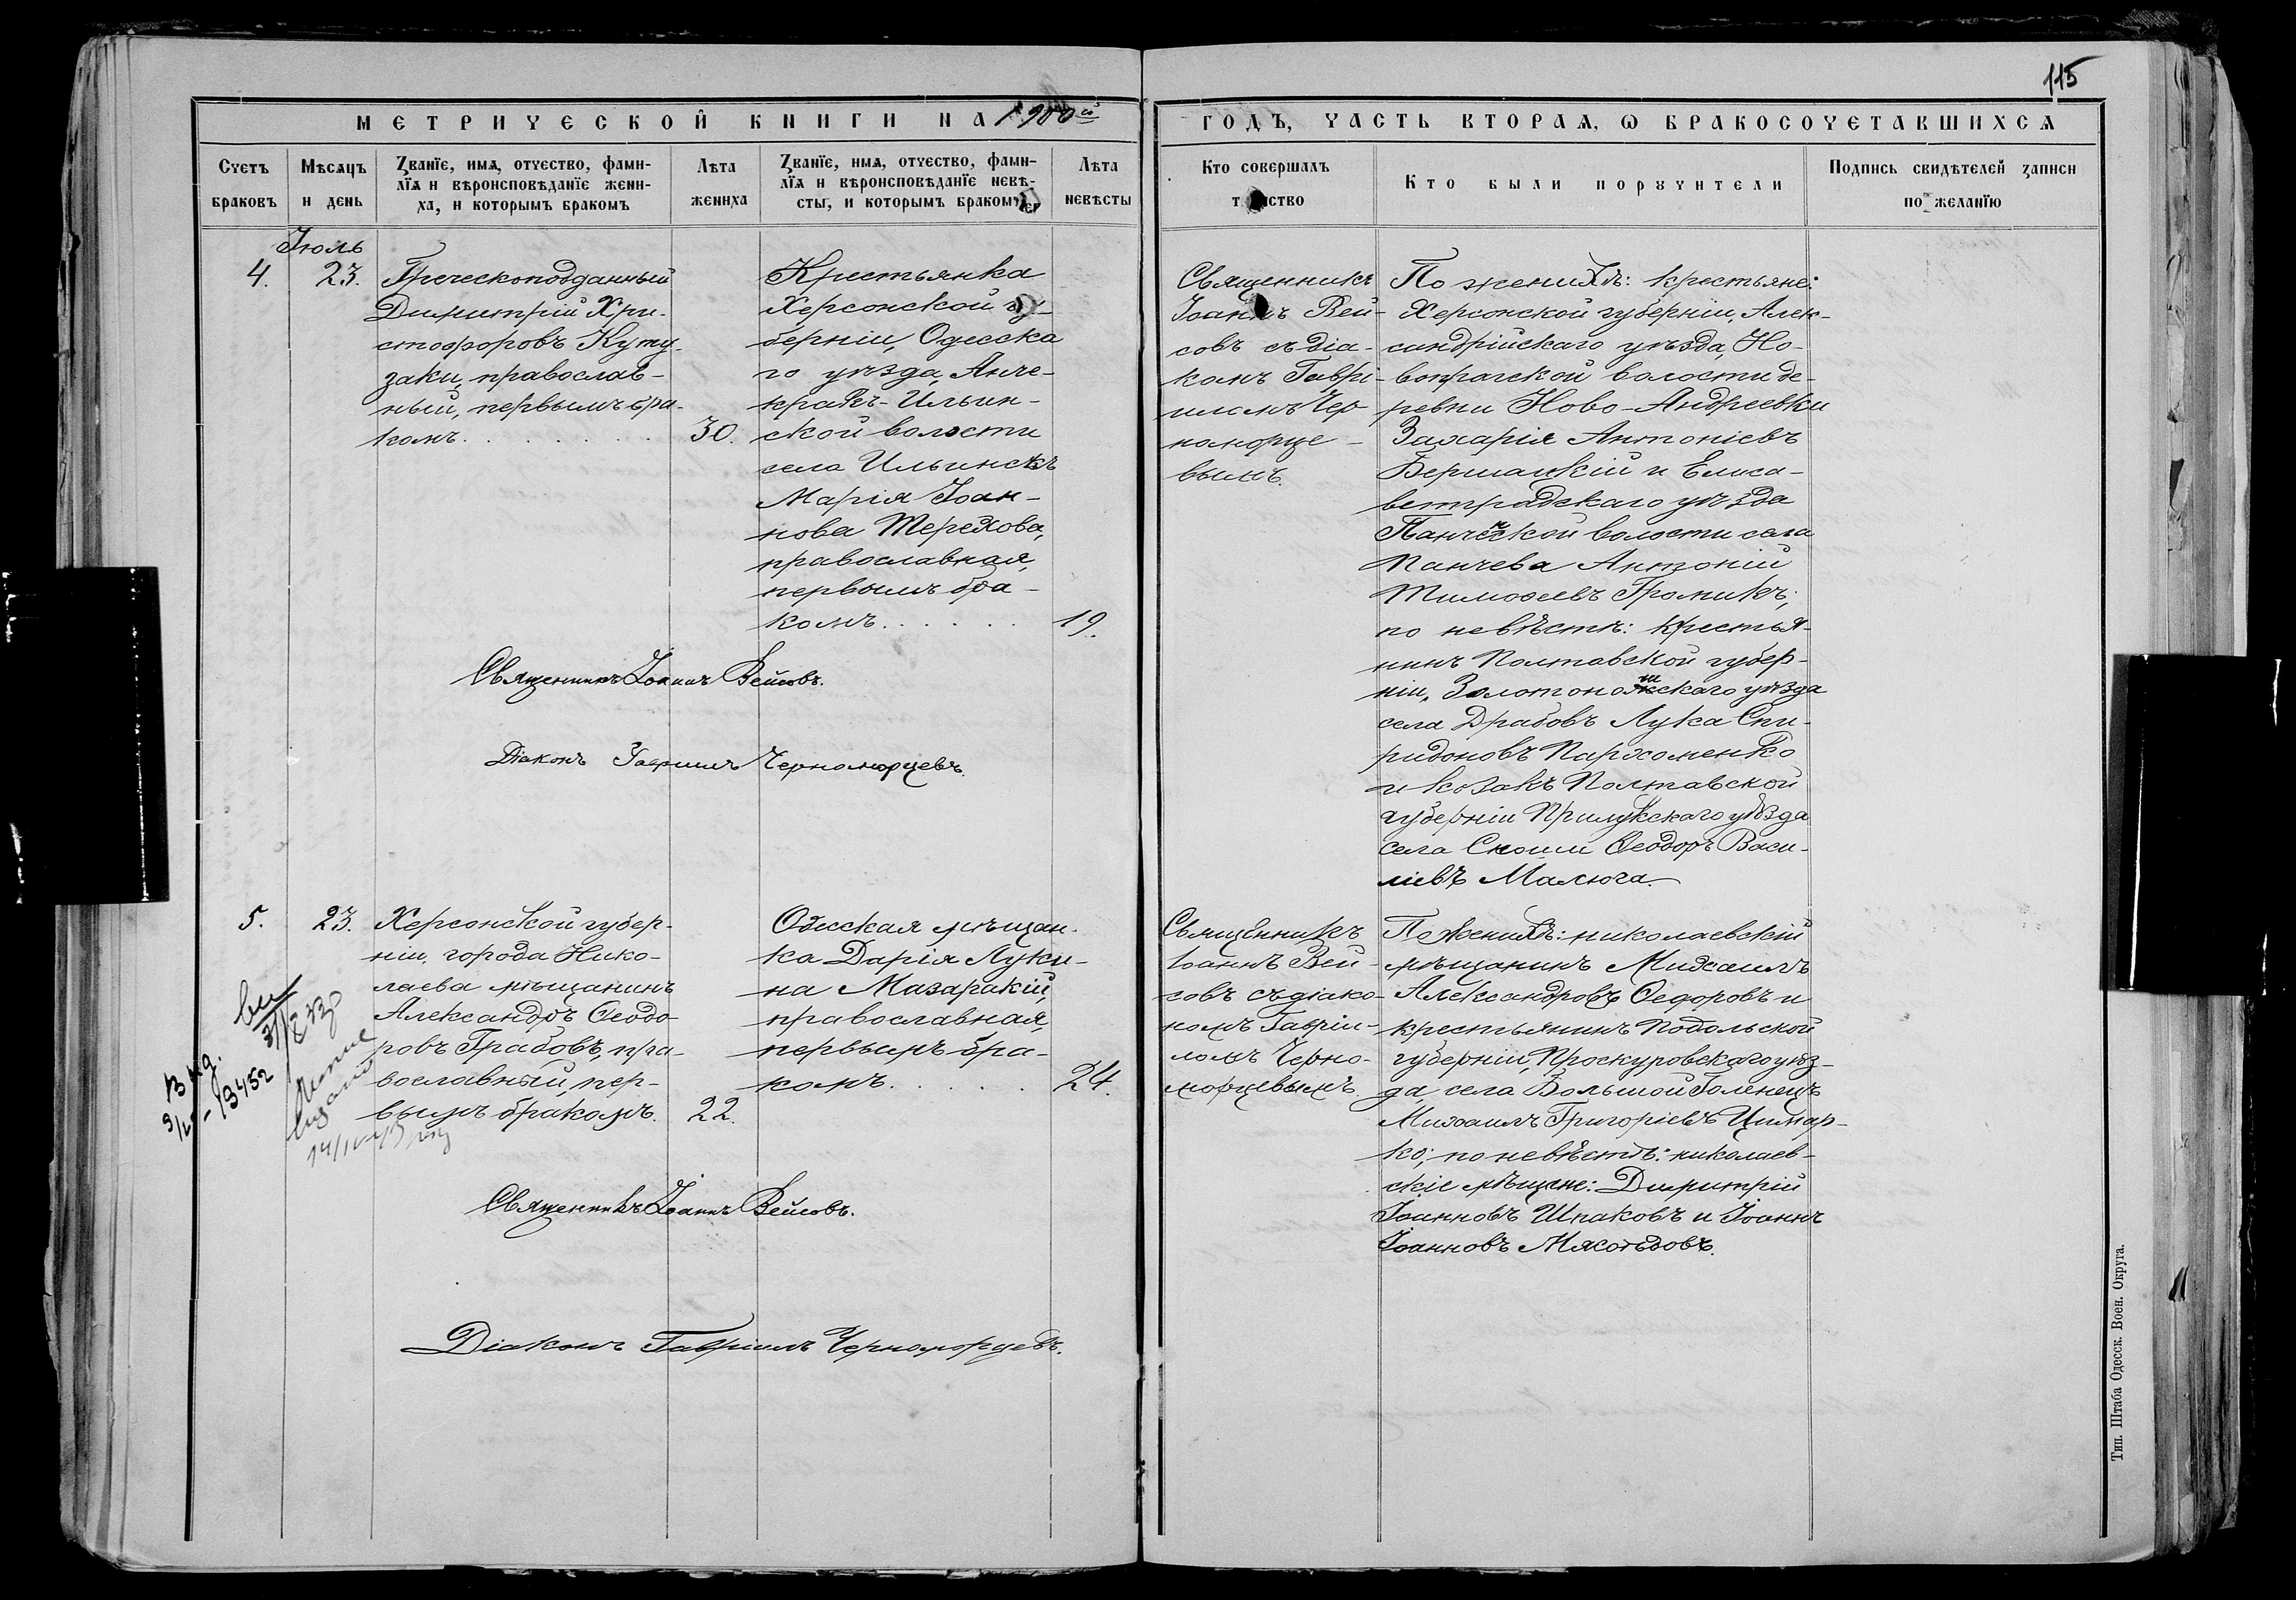 115
МЕТРИЧЕСКОЙ КНИГИ НА 1900й
ГОДЪ, ЧАСТЬ ВТОРАЯ, Ѡ БРАКОСОЧЕТАВШИХСЯ
Счетъ браковъ
Мѣсяцъ и день
Званїе, имя, отчество, фами-
лїя и вѣроисповѣданїе жени-
ха, и которымъ бракомъ
Лѣта жениха
Званїе, имя, отчество, фами-
лїя и вѣроисповѣданїе невѣ-
сты, и которымъ бракомъ
Лѣта невѣсты
Кто совершалъ
Кто были поручители
Подпись свидѣтелей записи
по желанїю
Іюль
4.
23.
Греческоподданный
Димитрій Хри-
стофоровъ Куту-
заки, православ-
ный, первымъ бра-
комъ.
30.
Крестьянка
Херсонской гу-
берніи, Одесска
го уѣзда, Анче-
кракъ-Ильин-
ской волости
села Ильинскъ
Марія Іоан-
нова Терехова,
православная,
первымъ бра-
комъ.
19.
Священникъ Іоаннъ Вейсовъ.
Діаконъ Гавріилъ Черноморцевъ.
Священникъ
Іоаннъ Вей-
совъ съ діа-
кономъ Гаврі-
иломъ Чер
номорце-
вымъ.
По женихѣ: крестьяне:
Херсонской губерніи, Алек-
сандрійскаго уѣзда, Но-
вопрагской волости де-
ревни Ново-Андреевки
Захарія Антоніевъ
и Елиса-
ветградскаго уѣзда
Панчевской волости села
Панчева Антоній
Тимофеевъ Громикъ;
по невѣстѣ: крестья-
нинъ Полтавской губер-
ніи, Золотоношскаго уѣзда
села Драбовъ Лука Спи-
ридоновъ Пархоменко
и козакъ Полтавской
губерніи Прилукскаго уѣзда
села Ѳеодоръ Васи-
ліевъ Малюга.
5.
23.
Херсонской губер-
ніи, города Нико-
лаева мѣщанинъ
Александръ Ѳеодо-
ровъ Грабовъ, пра-
вославный, пер-
вымъ бракомъ.
22.
Одесская мѣщан-
ка Дарія Луки-
на Мазаракій,
православная,
первымъ бра-
комъ.
24.
13452
Священникъ Іоаннъ Вейсовъ.
Діаконъ Гавріилъ Черноморцевъ.
Священникъ
Іоаннъ Вей-
совъ съ діако-
номъ Гавріи-
ломъ Черно-
морцевымъ.
По женихѣ: николаевскій
мѣщанинъ Михаилъ
Александровъ Ѳедоровъ и
крестьянинъ Подольской
губерніи, Проскуровскаго уѣз-
да, села Большой Голенецъ
Михаилъ Григоріевъ Цимар-
ко; по невѣстѣ: николаев-
скіе мѣщане: Димитрій
Іоанновъ Шпаковъ и Іоаннъ
Іоанновъ Мясоѣдовъ.
Тип. Штаба Одесск. Воен. Округа.